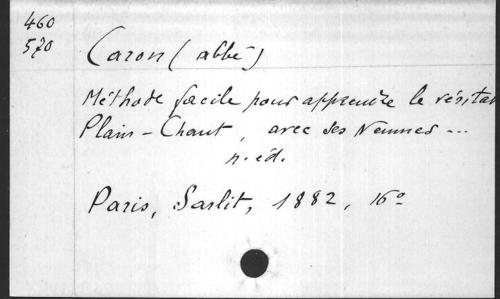 460
570
Caron (abbé)
Méthode facile pour apprendre le
Plain-Chant, avec des Neumes ...
n. éd.
Paris, Sarlit, 1882, 16°